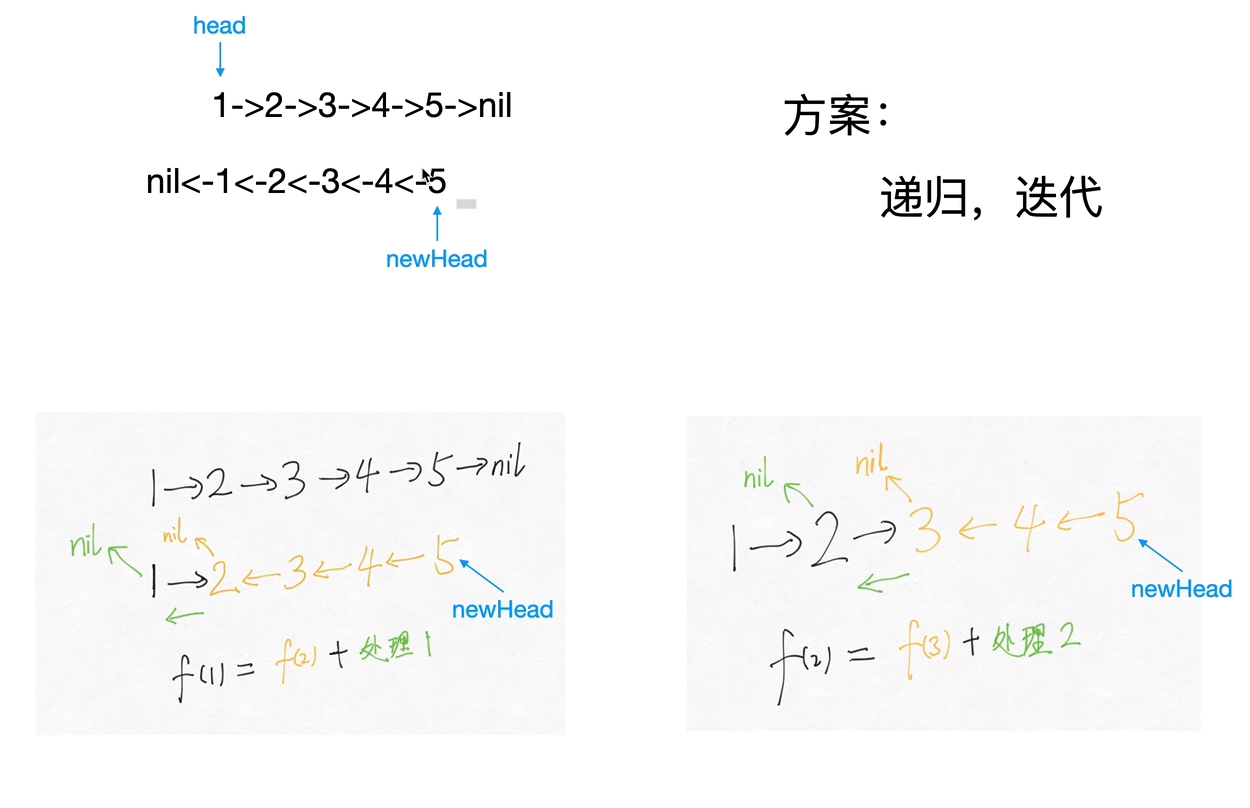 head
1->2->3->4->5->nil
nil<-1<-2<-3<-4<-5
newHead
方案：
递归，迭代
1→2→3→4→5→nil
nil nil
1→2←3←4←5
newHead
f(1) = f(2) + 处理1
nil nil
1→2→3←4←5
newHead
f(2) = f(3) + 处理2